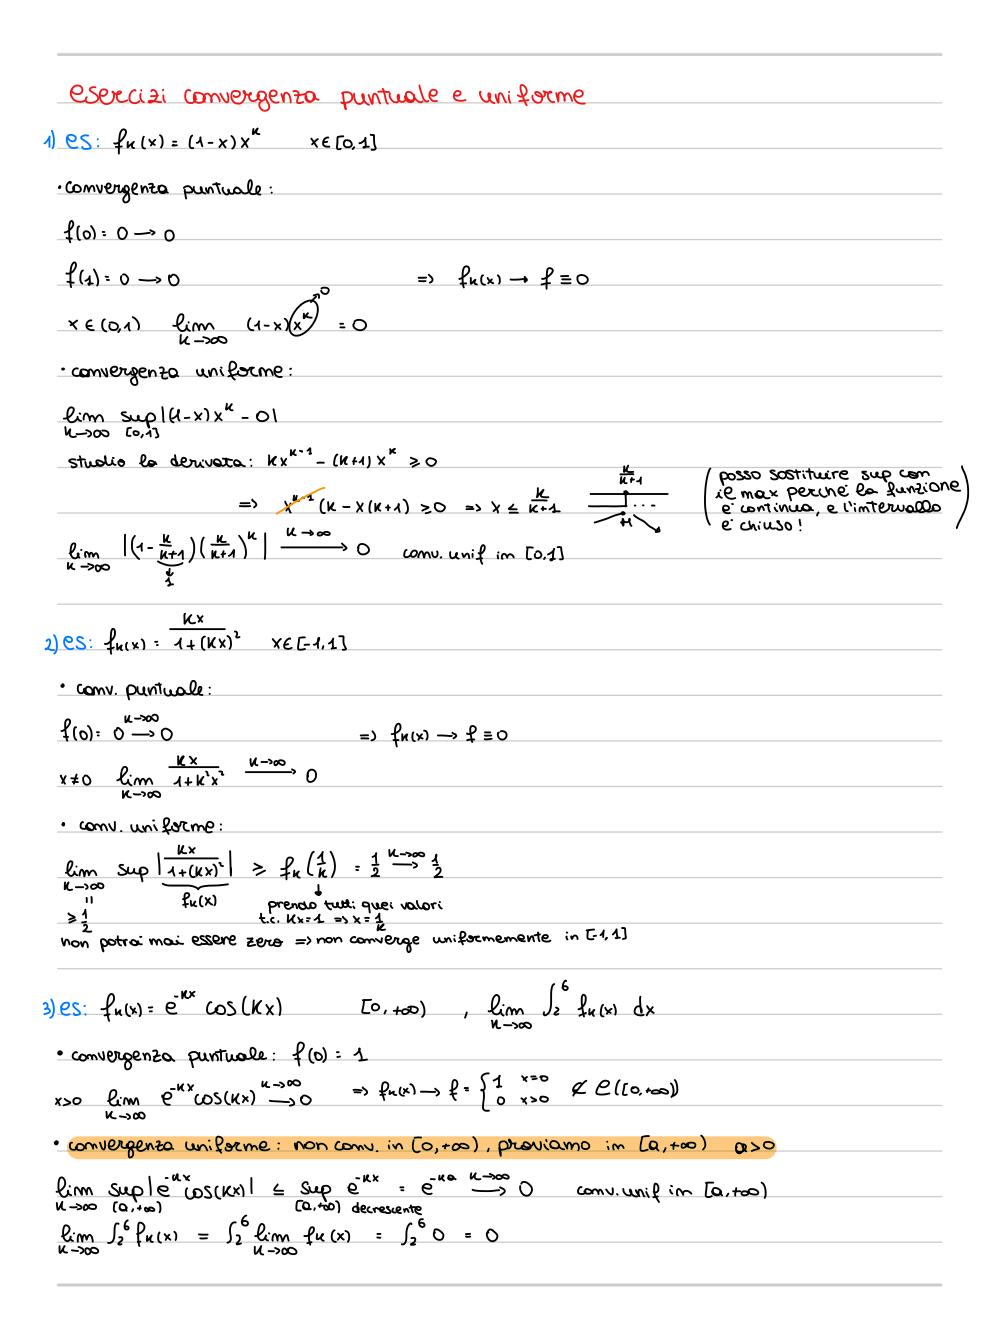 esercizi convergenza puntuale e uniforme
1) es: fₖ(x) = (1-x)xᵏ x∈[0,1]
• convergenza puntuale:
f(0) = 0 → 0
f(1) = 0 → 0 => fₖ(x) → f ≡ 0
x∈(0,1) lim k→∞ (1-x)xᵏ = 0
→ 0
• convergenza uniforme:
lim k→∞ sup [0,1] |(1-x)xᵏ - 0|
studio la derivata: kxᵏ⁻¹ - (k+1)xᵏ ≥ 0
=> xᵏ⁻¹ (k - x(k+1)) ≥ 0 => x ≤ k/(k+1)
k/(k+1)
M
(posso sostituire sup con
il max perché la funzione
è continua, e l'intervallo
è chiuso!)
lim k→∞ |(1 - k/(k+1))(k/(k+1))ᵏ| k→∞ → 0 conv. unif in [0,1]
↓ 1
2) es: fₖ(x) = kx/(1+(kx)²) x∈[-1,1]
• conv. puntuale:
f(0) = 0 k→∞ → 0 => fₖ(x) → f ≡ 0
x≠0 lim k→∞ kx/(1+k²x²) k→∞ → 0
• conv. uniforme:
lim k→∞ sup |kx/(1+(kx)²)| ≥ fₖ(1/k) = 1/2 k→∞ → 1/2
fₖ(x)
= ≥ 1/2
prendo tutti quei valori
t.c. kx=1 => x = 1/k
non potrà mai essere zero => non converge uniformemente in [-1,1]
3) es: fₖ(x) = e⁻ᵏˣ cos(kx) [0,+∞) , lim k→∞ ∫₂⁶ fₖ(x) dx
• convergenza puntuale: f(0) = 1
x>0 lim k→∞ e⁻ᵏˣ cos(kx) k→∞ → 0 => fₖ(x) → f = { 1 x=0 0 x>0 ∉ C([0,+∞))
• convergenza uniforme: non conv. in [0,+∞), proviamo in [a,+∞) a>0
lim k→∞ sup [a,+∞) |e⁻ᵏˣ cos(kx)| ≤ sup [a,+∞) e⁻ᵏˣ = e⁻ᵏᵃ k→∞ → 0 conv. unif in [a,+∞)
decrescente
lim k→∞ ∫₂⁶ fₖ(x) = ∫₂⁶ lim k→∞ fₖ(x) = ∫₂⁶ 0 = 0